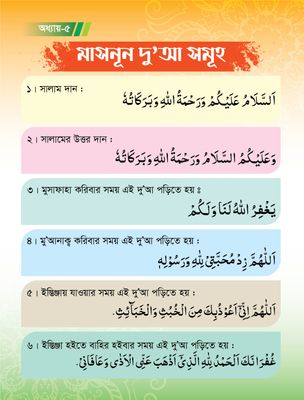 অধ্যায়-৫
মাসনূন দু'আ সমূহ
১। সালাম দান :
اَلسَّلَامُ عَلَيْكُمْ وَرَحْمَةُ اللهِ وَبَرَكَاتُهٗ
২। সালামের উত্তর দান :
وَعَلَيْكُمُ السَّلَامُ وَرَحْمَةُ اللهِ وَبَرَكَاتُهٗ
৩। মুসাফাহা করিবার সময় এই দু'আ পড়িতে হয় ঃ
يَغْفِرُ اللهُ لَنَا وَلَكُمْ
৪। মু'আনাক্ব করিবার সময় এই দু'আ পড়িতে হয় :
اَللّٰهُمَّ زِدْ مُحَبَّتِىْ لِلّٰهِ وَرَسُوْلِهٖ
৫। ইস্তিঞ্জায় যাওয়ার সময় এই দু'আ পড়িতে হয় :
اَللّٰهُمَّ اِنِّىْ اَعُوْذُبِكَ مِنَ الْخُبُثِ وَالْخَبَآئِثِ.
৬। ইস্তিঞ্জা হইতে বাহির হইবার সময় এই দু'আ পড়িতে হয় :
غُفْرَانَكَ اَلْحَمْدُ لِلّٰهِ الَّذِىْ اَذْهَبَ عَنِّى الْاَذٰى وَعَافَانِىْ.